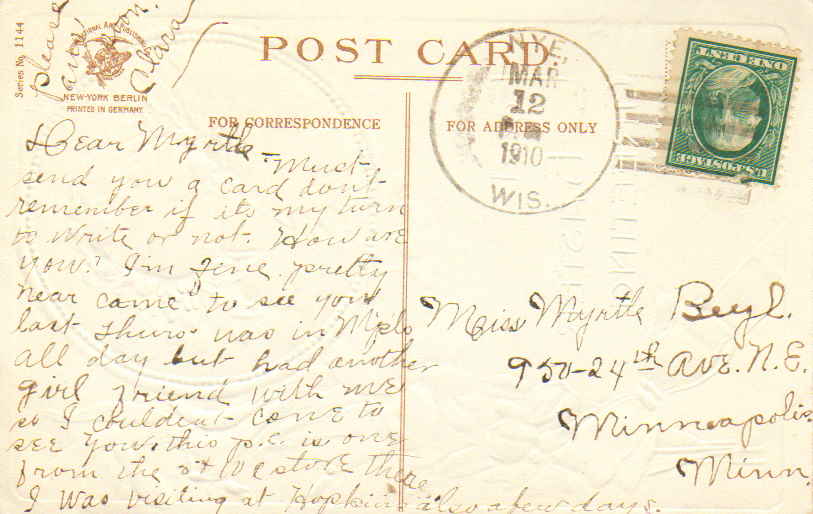 Please
ans.
soon.
Clara
Series No. 1144
NEW-YORK BERLIN
PRINTED IN GERMANY
POST CARD.
NYE,
MAR
12
1910
WIS.
ONE CENT
U.S. POSTAGE
FOR CORRESPONDENCE
FOR ADDRESS ONLY
Dear Myrtle – Must
send you a card dont
remember if its my turn
to write or not. How are
you? I'm fine. pretty
near came to see you
last Thurs. was in Mpls
all day but had another
girl friend with me
so I couldent come to
see you. this p.c. is one
from the 5 & 10 c store there
I was visiting at Hopkins also a few days.
Miss Myrtle Beyl.
950-24th Ave. N.E.
Minneapolis
Minn.